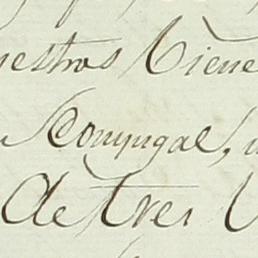 nestros Viene
Conyugal,
de tres